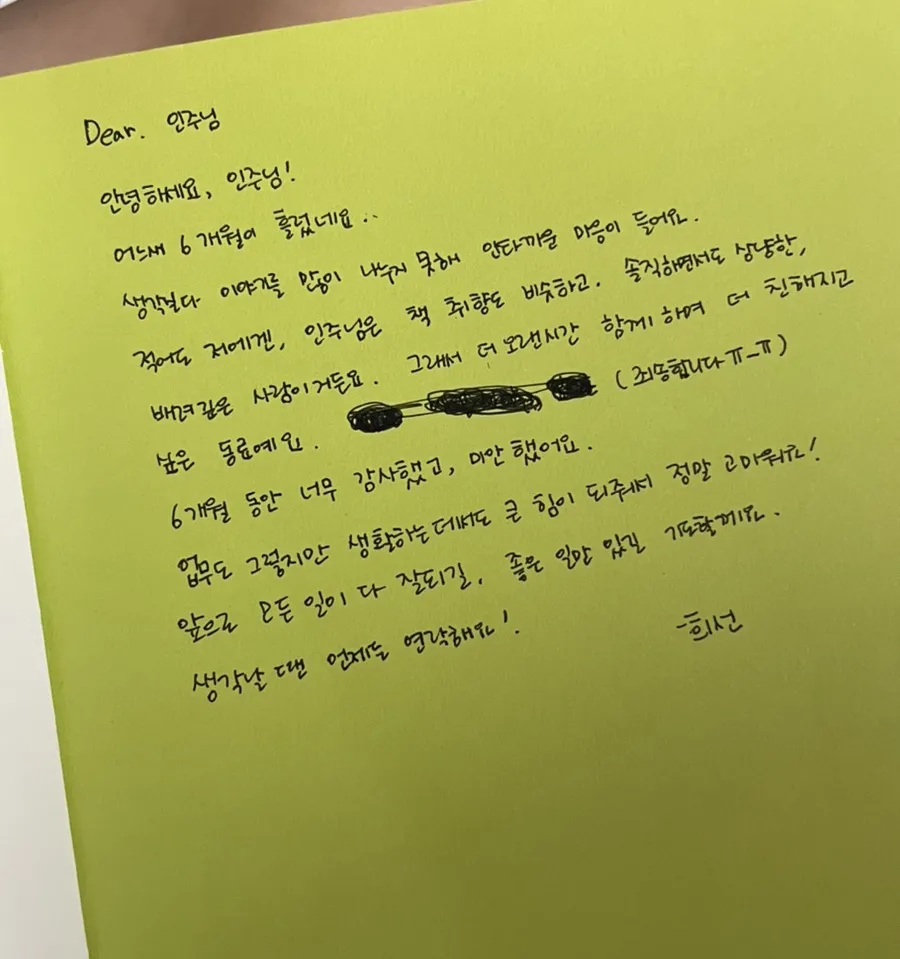 Dear. 인주님
안녕하세요, 인주님!
어느새 6개월이 흘렀네요..
생각보다 이야기를 많이 나누지 못해 안타까운 마음이 들어요.
적어도 저에겐, 인주님은 책 취향도 비슷하고. 솔직하면서도 상냥한,
배려깊은 사람이거든요. 그래서 더 오랜시간 함께하며 더 친해지고
싶은 동료예요. (죄송합니다 π_π)
6개월 동안 너무 감사했고, 미안했어요.
업무도 그렇지만 생활하는데서도 큰 힘이 되줘서 정말 고마워요!
앞으로 모든 일이 다 잘되길. 좋은 일만 있길 기도할께요.
생각날 땐 언제든 연락해요!
-희선